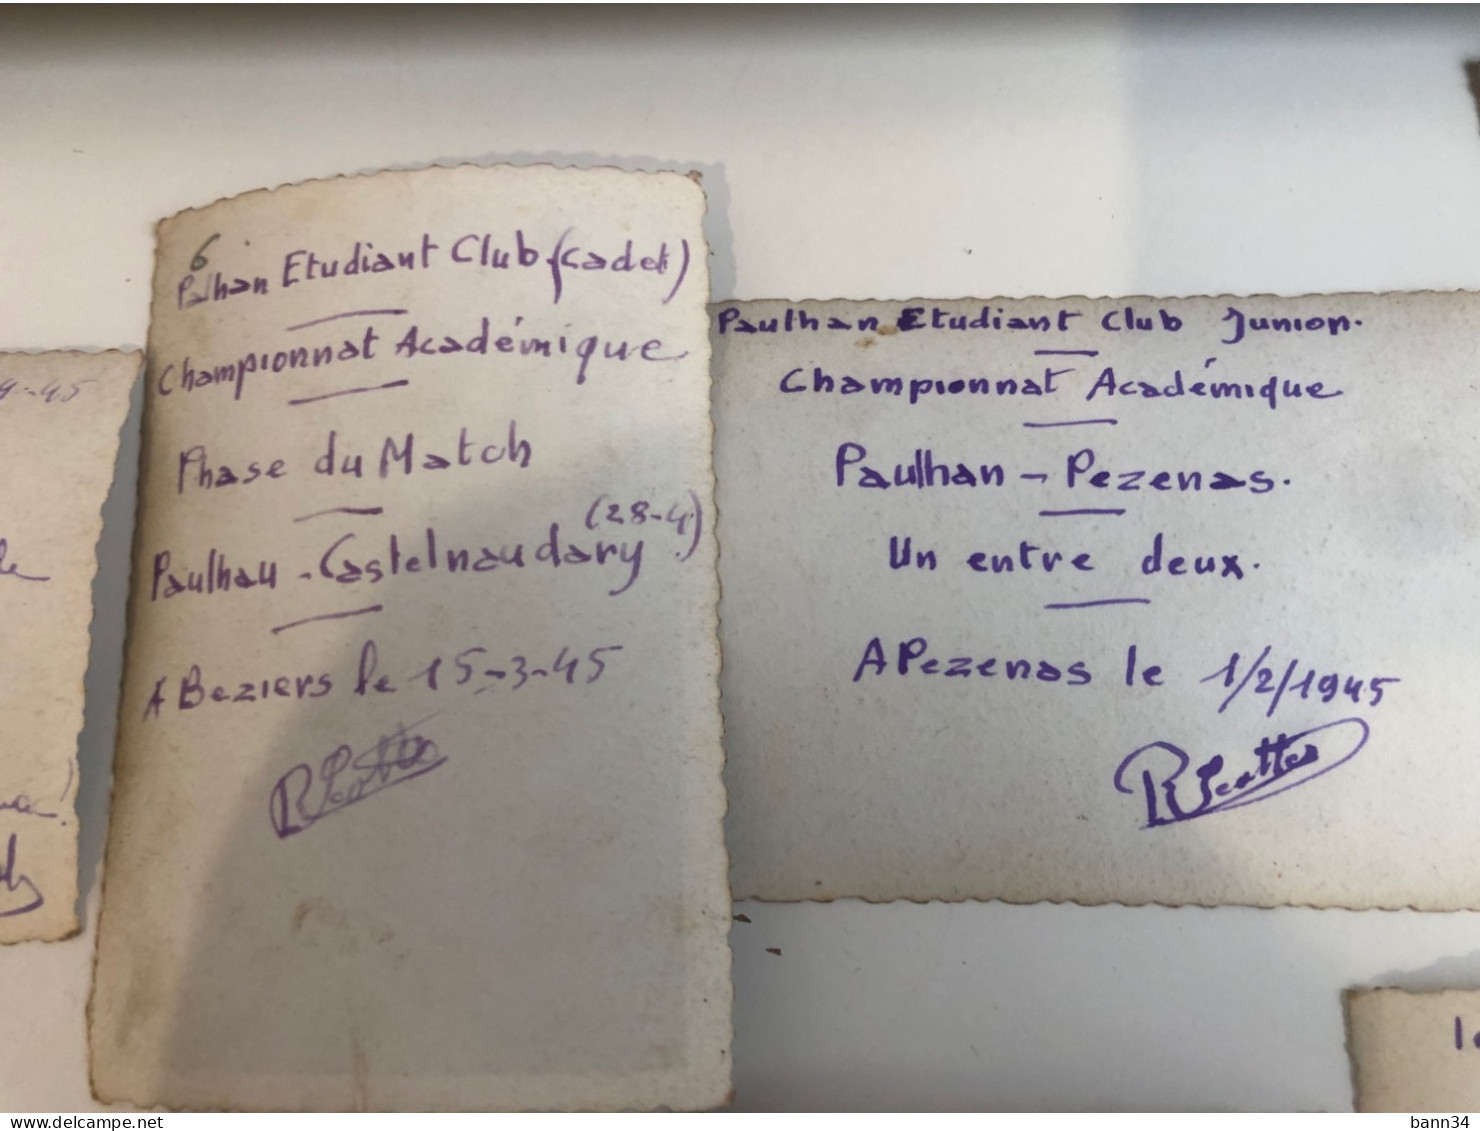 4-45
le
6
Palhan Etudiant Club (Cadet)
Championnat Académique
Phase du Match
Paulhan - Castelnaudary (28-4)
A Beziers le 15-3-45
Paulhan Etudiant Club Junior.
Championnat Académique
Paulhan - Pezenas.
Un entre deux.
A Pezenas le 1/2/1945
delcampe.net
bann34